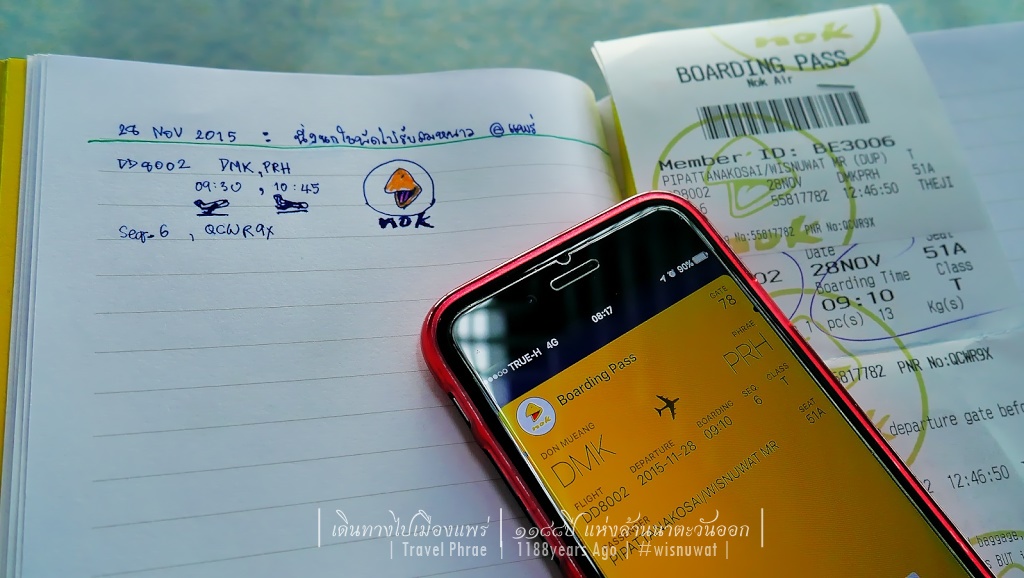 28 Nov 2015 : นั่งนกใจนัดไปรับลมหนาว @แพร่
DD8002 DMK, PRH
09:30 , 10:45
Seq-6 , QCWR9X
nok
nok
BOARDING PASS
Nok Air
Member ID: BE3006
PIPATTANAKOSAI/WISNUWAT MR (DUP) T
DD8002 28NOV DMKPRH 51A
6 55817782 12:46:50 THEJI
No:55817782 PNR No:QCWR9X
nok
Date Seat
02 28NOV 51A
Boarding Time Class
09:10 T
1 pc(s) 13 Kg(s)
55817782 PNR No:QCWR9X
departure gate befo
12:46:50
baggage,
BUT
TRUE-H 4G 08:17 90%
nok Boarding Pass GATE
78
DON MUEANG PHRAE
DMK PRH
FLIGHT DEPARTURE BOARDING SEQ CLASS
DD8002 2015-11-28 09:10 6 T
PASSENGER SEAT
PIPATTANAKOSAI/WISNUWAT MR 51A
| เดินทางไปเมืองแพร่ | ๑๑๘๘ปี แห่งล้านนาตะวันออก |
| Travel Phrae | 1188years Ago | #wisnuwat |